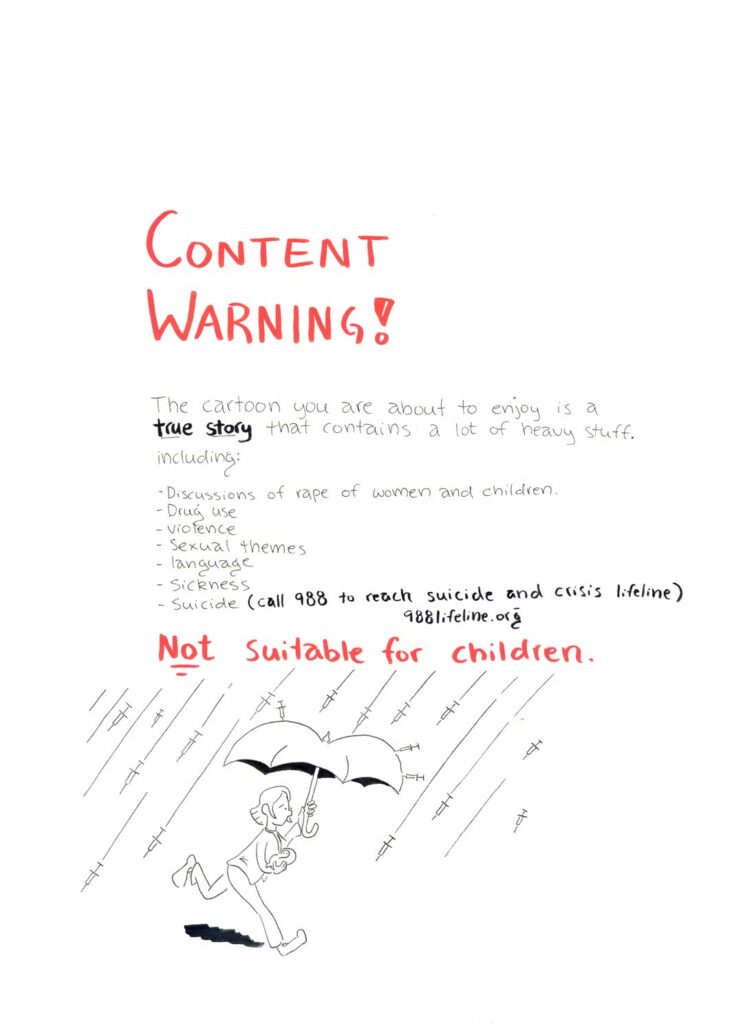 CONTENT
WARNING!
The cartoon you are about to enjoy is a
true story that contains a lot of heavy stuff.
including:
- Discussions of rape of women and children.
- Drug use
- violence
- Sexual themes
- language
- Sickness
- Suicide (call 988 to reach suicide and crisis lifeline)
988lifeline.org
Not suitable for children.